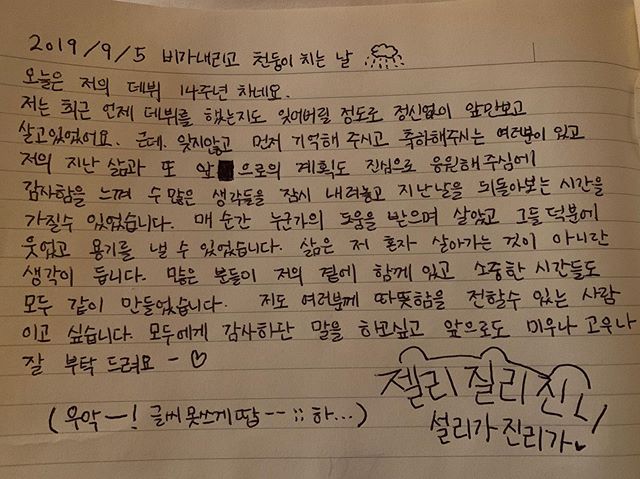 2019/9/5 비가내리고 천둥이 치는 날
오늘은 저의 데뷔 14주년 차네요.
저는 최근 언제 데뷔를 했는지도 잊어버릴 정도로 정신없이 앞만보고
살고있었어요. 근데. 잊지않고 먼저 기억해 주시고 축하해주시는 여러분이 있고
저의 지난 삶과 또 앞으로의 계획도 진심으로 응원해주심에
감사함을 느껴 수많은 생각들을 잠시 내려놓고 지난날을 뒤돌아보는 시간을
가질수 있었습니다. 매 순간 누군가의 도움을 받으며 살았고 그들 덕분에
웃었고 용기를 낼 수 있었습니다. 삶은 저 혼자 살아가는 것이 아니란
생각이 듭니다. 많은 분들이 저의 곁에 함께 있고 소중한 시간들도
모두 같이 만들었습니다. 저도 여러분께 따뜻함을 전할수 있는 사람
이고 싶습니다. 모두에게 감사하단 말을 하고싶고 앞으로도 미우나 고우나
잘 부탁 드려요 - ♡
젤리 질리 진!
설리가 진리가♥
(우악-! 글씨 못쓰게땁--;; 하...)